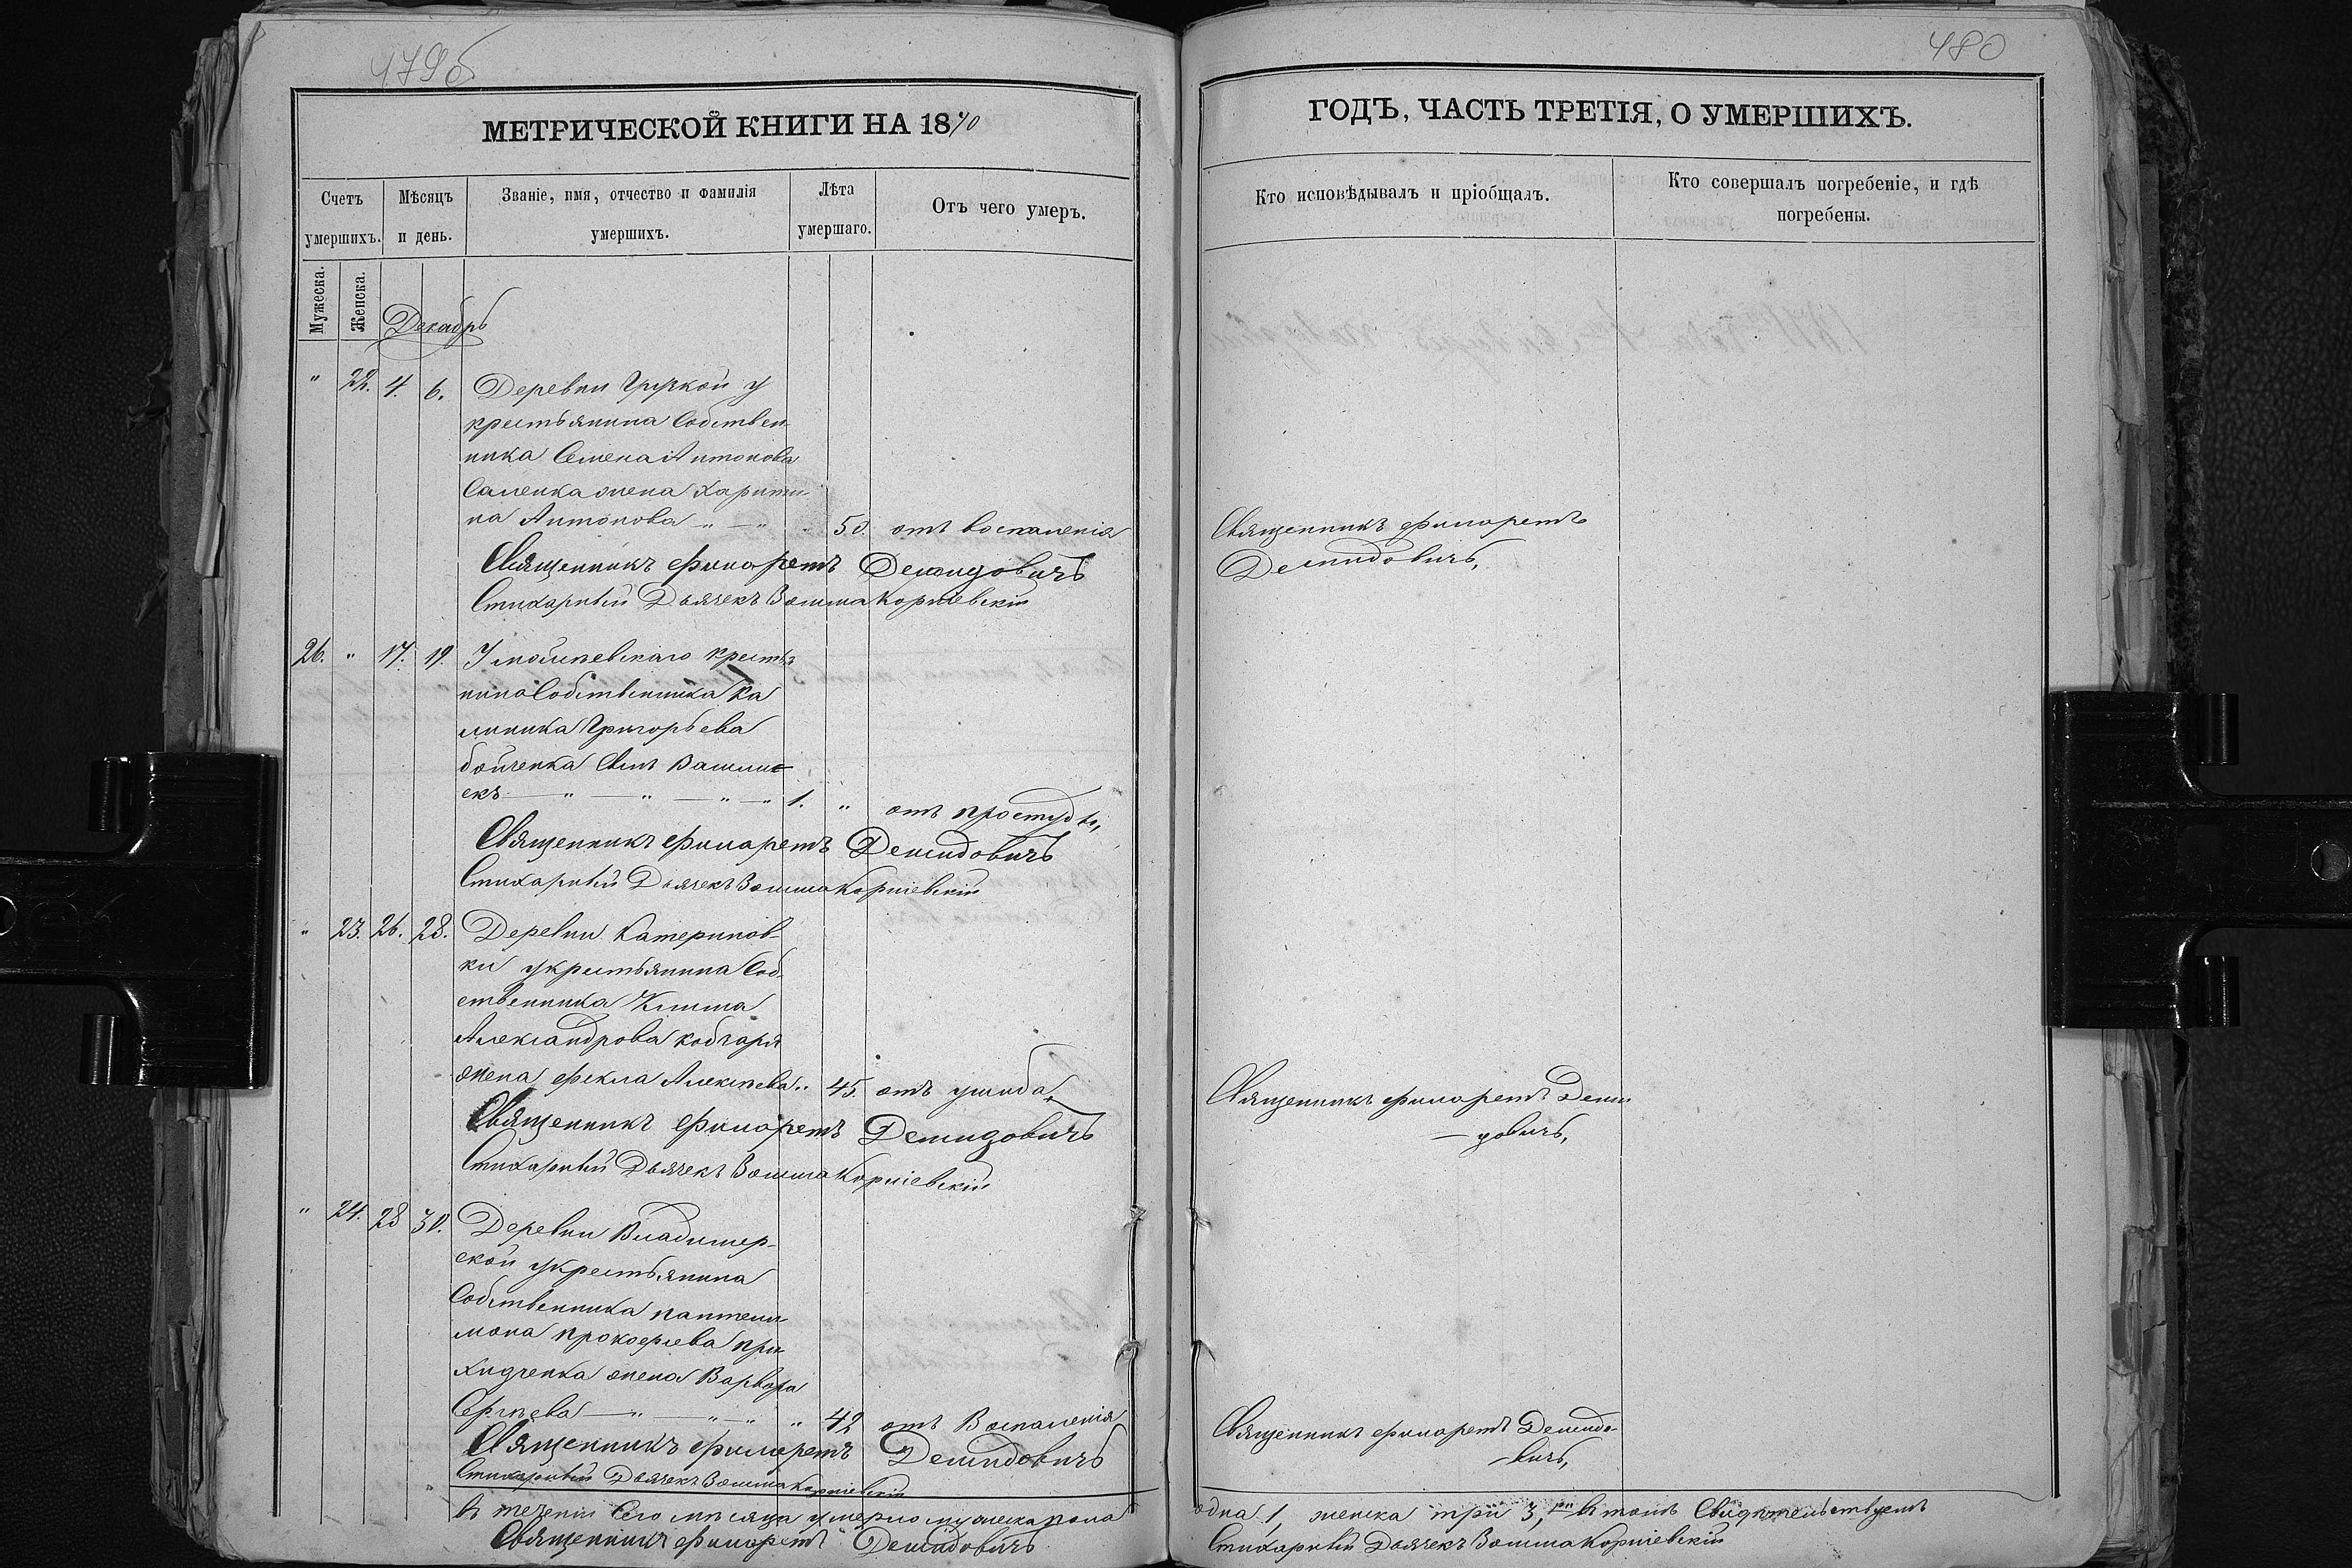 479б
480
МЕТРИЧЕСКОЙ КНИГИ НА 1870
ГОДЪ, ЧАСТЬ ТРЕТІЯ, О УМЕРШИХЪ.
Счетъ умершихъ.
Мѣсяцъ и день.
Званіе, имя, отчество и фамилія умершихъ.
Лѣта умершаго.
Отъ чего умеръ.
Кто исповѣдывалъ и пріобщалъ.
Кто совершалъ погребеніе, и гдѣ погребены.
Мужеска.
Женска.
Декабрь
" 22. 4. 6. Деревни у
крестьянина Собствен
ника Семена Антонова
Саленка жена Харити
на Антонова 50. отъ воспаленія
Священникъ Филаретъ
Демидовичъ,
Священникъ Филаретъ Демидовичъ
Стихарный Дьячекъ Корніевскій
26. " 17. 19. крестья
нина Собственника Ка
линика Григорьева
бойченка Сынъ
екъ 1. " отъ простуды,
Священникъ Филаретъ Демидовичъ
Стихарный Дьячекъ Корніевскій
" 23. 26. 28. Деревни Катеринов
ки у крестьянина Соб
ственника Клима
Александрова
жена Фекла Алексѣева 45. отъ ушиба,
Священникъ Филаретъ Деми
довичъ,
Священникъ Филаретъ Демидовичъ
Стихарный Дьячекъ Корніевскій
" 24. 28 30. Деревни Владимер
ской у крестьянина
Собственника пантели
мона прокофіева при
ходченка жена Варвара
Сергѣева 42 отъ Воспаленія
Священникъ Филаретъ Демидо
вичъ,
Священникъ Филаретъ Демидовичъ
Стихарный Дьячекъ Корніевскій
въ теченіи Сего мѣсяца умерло мужеска пола
одна 1, женска три 3, въ томъ Свидѣтельствуемъ
Священникъ Филаретъ Демидовичъ
Стихарный Дьячекъ Корніевскій